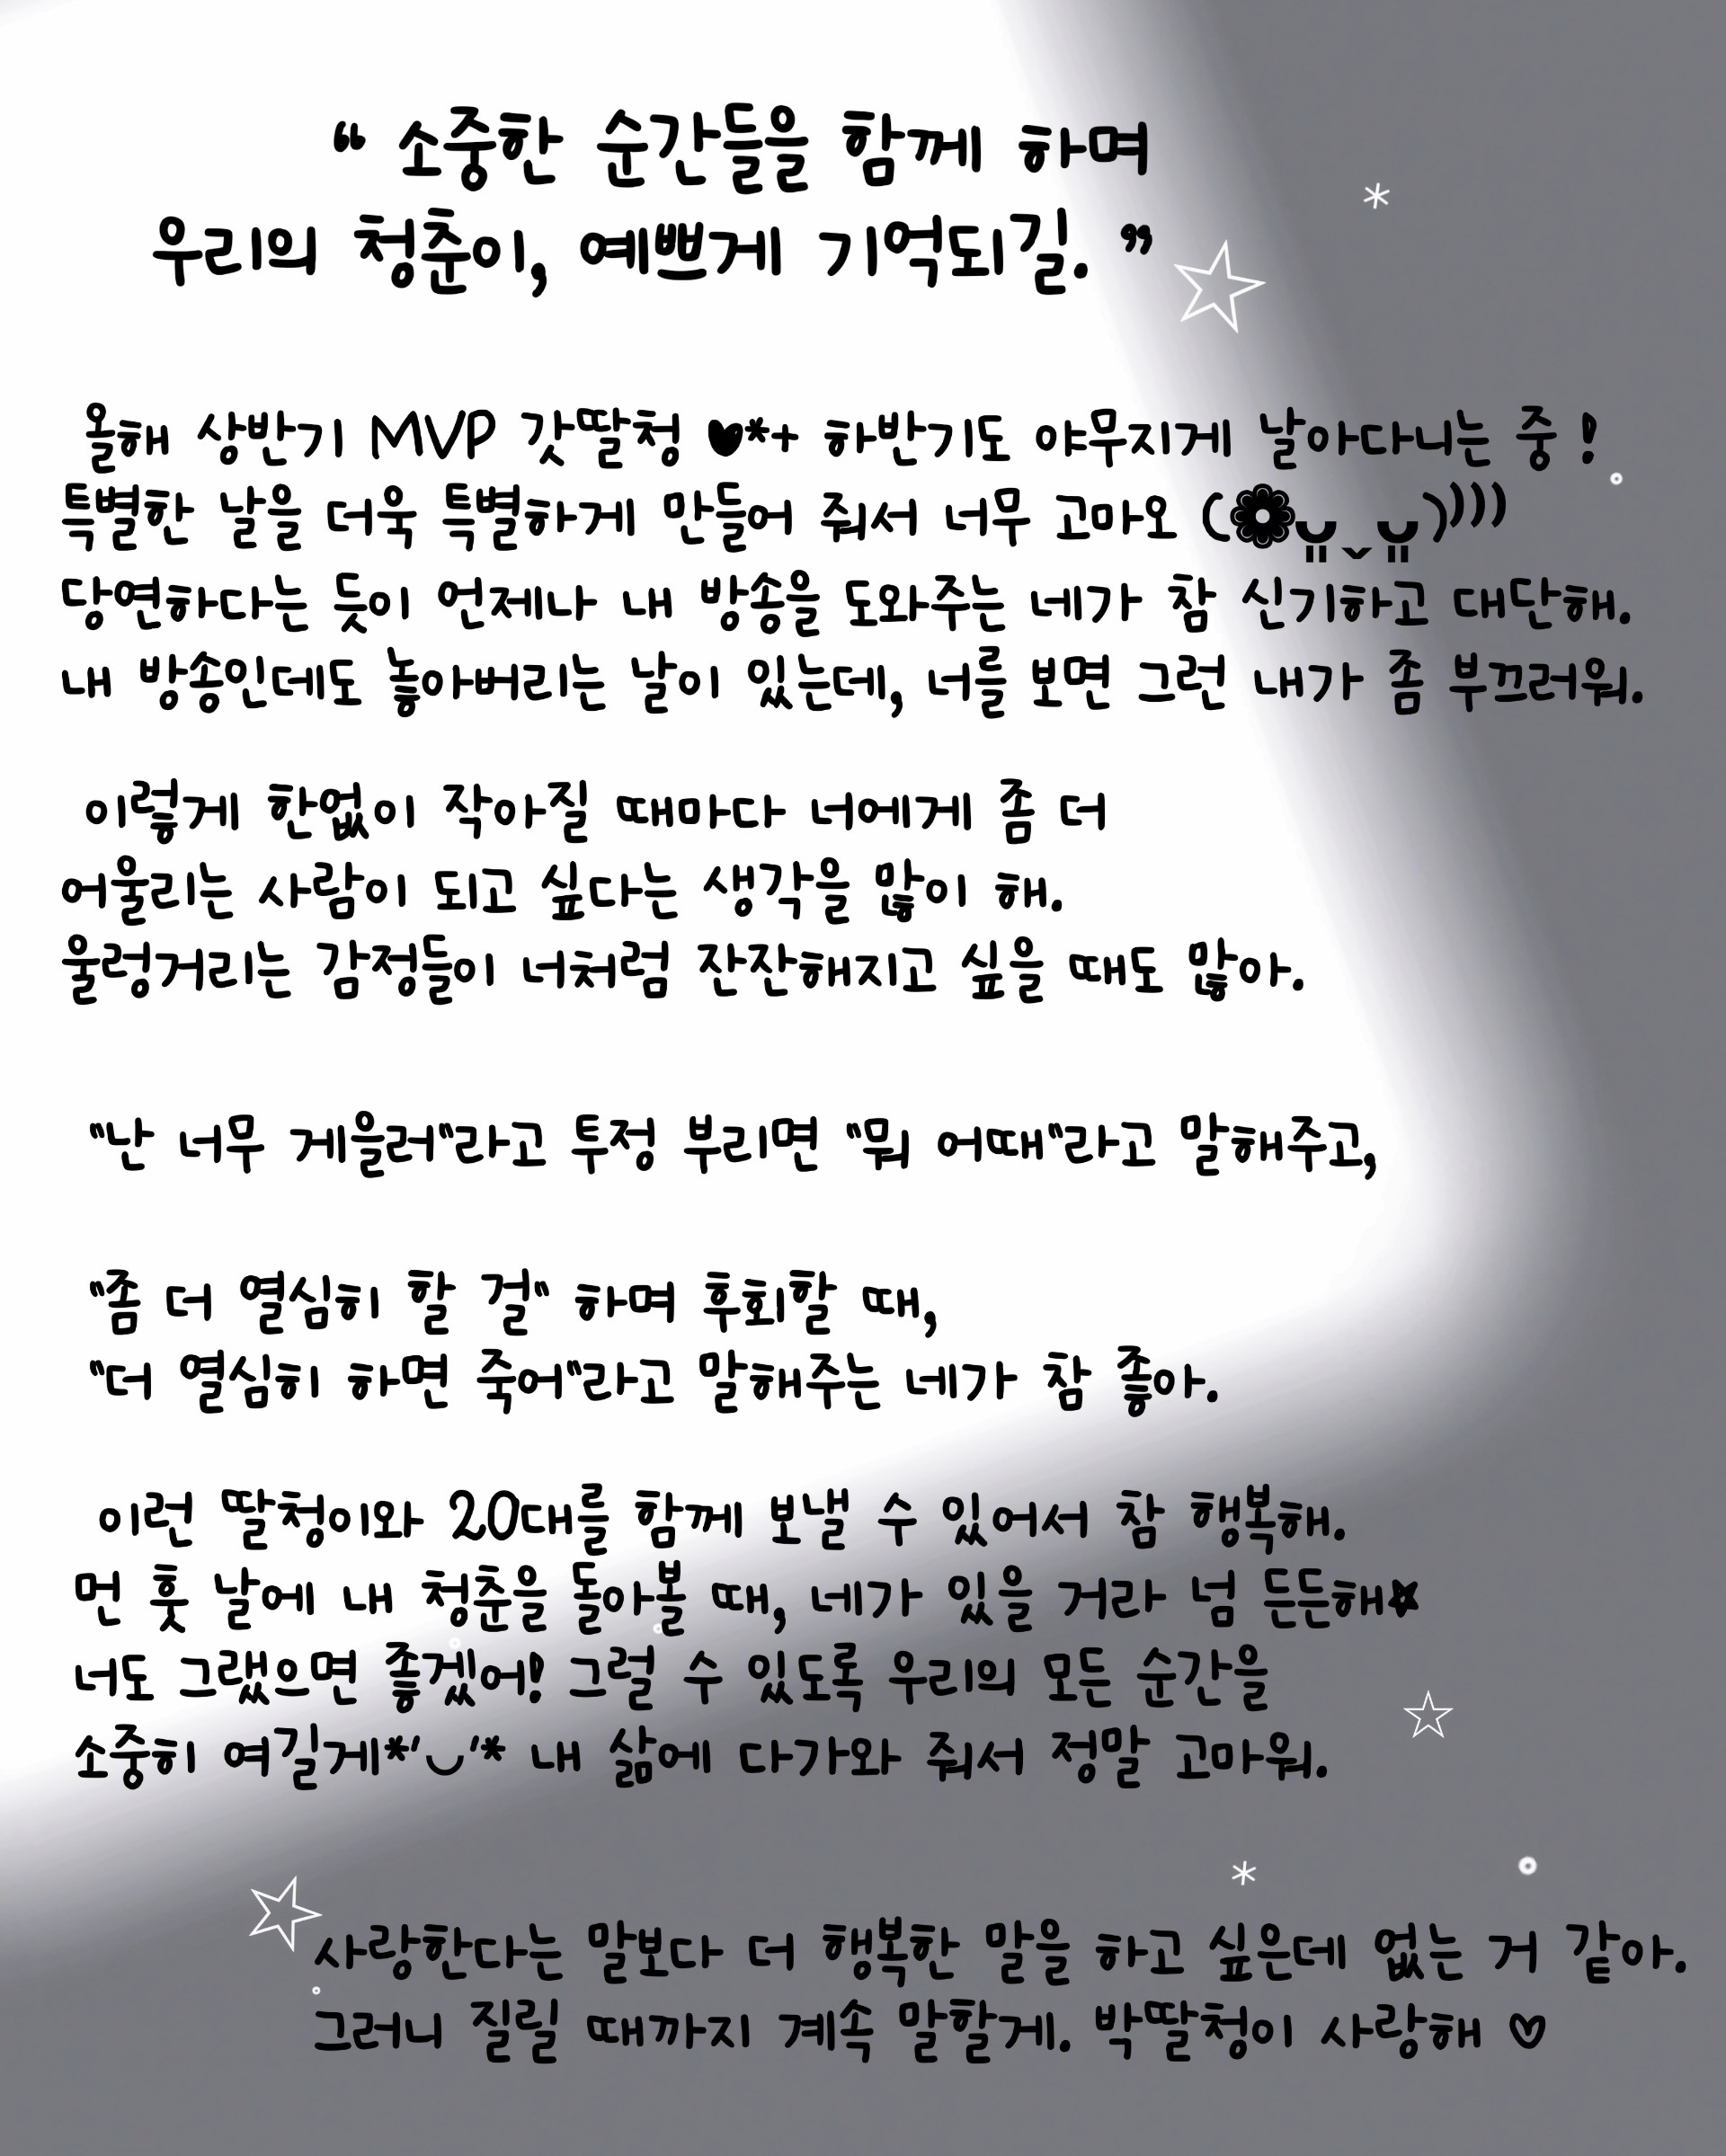 “ 소중한 순간들을 함께 하며
우리의 청춘이, 예쁘게 기억되길. ”
올해 상반기 MVP 갓딸청 ♥*+ 하반기도 야무지게 날아다니는 중 !
특별한 날을 더욱 특별하게 만들어 줘서 너무 고마오 (❁ᴗ͈ˬᴗ͈))))
당연하다는 듯이 언제나 내 방송을 도와주는 네가 참 신기하고 대단해.
내 방송인데도 놓아버리는 날이 있는데, 너를 보면 그런 내가 좀 부끄러워.
이렇게 한없이 작아질 때마다 너에게 좀 더
어울리는 사람이 되고 싶다는 생각을 많이 해.
울렁거리는 감정들이 너처럼 잔잔해지고 싶을 때도 많아.
"난 너무 게을러"라고 투정 부리면 "뭐 어때"라고 말해주고,
"좀 더 열심히 할 걸" 하며 후회할 때,
"더 열심히 하면 죽어"라고 말해주는 네가 참 좋아.
이런 딸청이와 20대를 함께 보낼 수 있어서 참 행복해.
먼 훗 날에 내 청춘을 돌아볼 때, 네가 있을 거라 넘 든든해★
너도 그랬으면 좋겠어! 그럴 수 있도록 우리의 모든 순간을
소중히 여길게*'◡'* 내 삶에 다가와 줘서 정말 고마워.
사랑한다는 말보다 더 행복한 말을 하고 싶은데 없는 거 같아.
그러니 질릴 때까지 계속 말할게. 박딸청이 사랑해 ♡